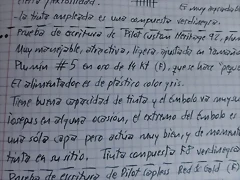 - la tinta empleada es una compuesta verdinegra.
Prueba de escritura de Pilot Custom Heritage 92, plum
Muy manejable, atractiva, ligera, ajustada en tamaño
Plumín #5 en oro de 14 kt (F), que se hace "peque
El alimentador es de plástico color gris.
Tiene buena capacidad de tinta y el émbolo va muy su
en alguna ocasión, el extremo del émbolo es
una sola capa pero actúa muy bien, y de momento
tinta en su sitio. Tinta compuesta F8 verdinegra
Prueba de escritura de Pilot Capless Red & Gold (F)